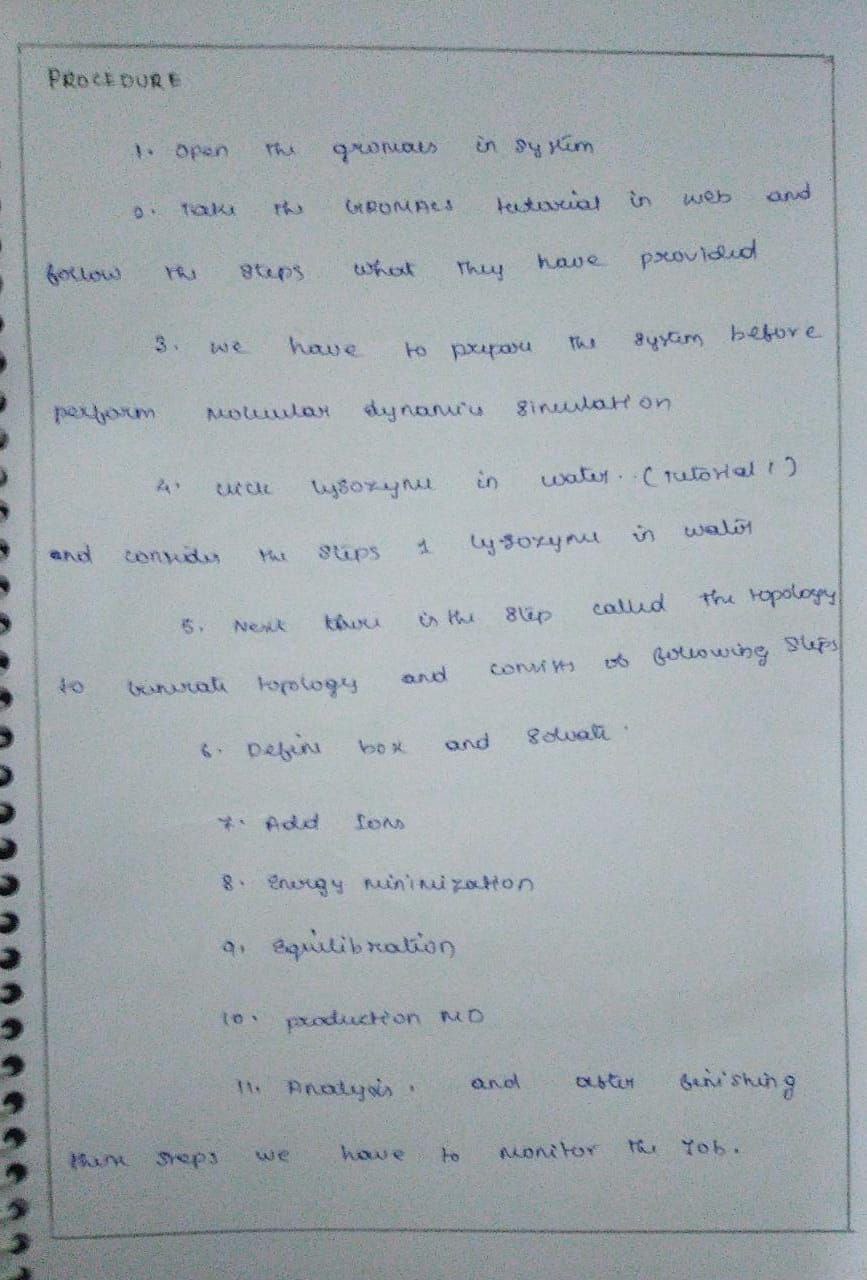 PROCEDURE
1. Open the gromacs in system
2. Take the GROMACS tutorial in web and
follow the steps what they have provided
3. we have to prepare the system before
perform Molecular dynamics simulation
4. click lysozyme in water. (Tutorial 1)
and consider the steps 1 lysozyme in water
5. Next there is the step called the topology
to Generate topology and consists of following steps
6. Define box and solvate.
7. Add Ions
8. Energy minimization
9. Equilibration
10. production MD
11. Analysis. and after finishing
these steps we have to monitor the Job.